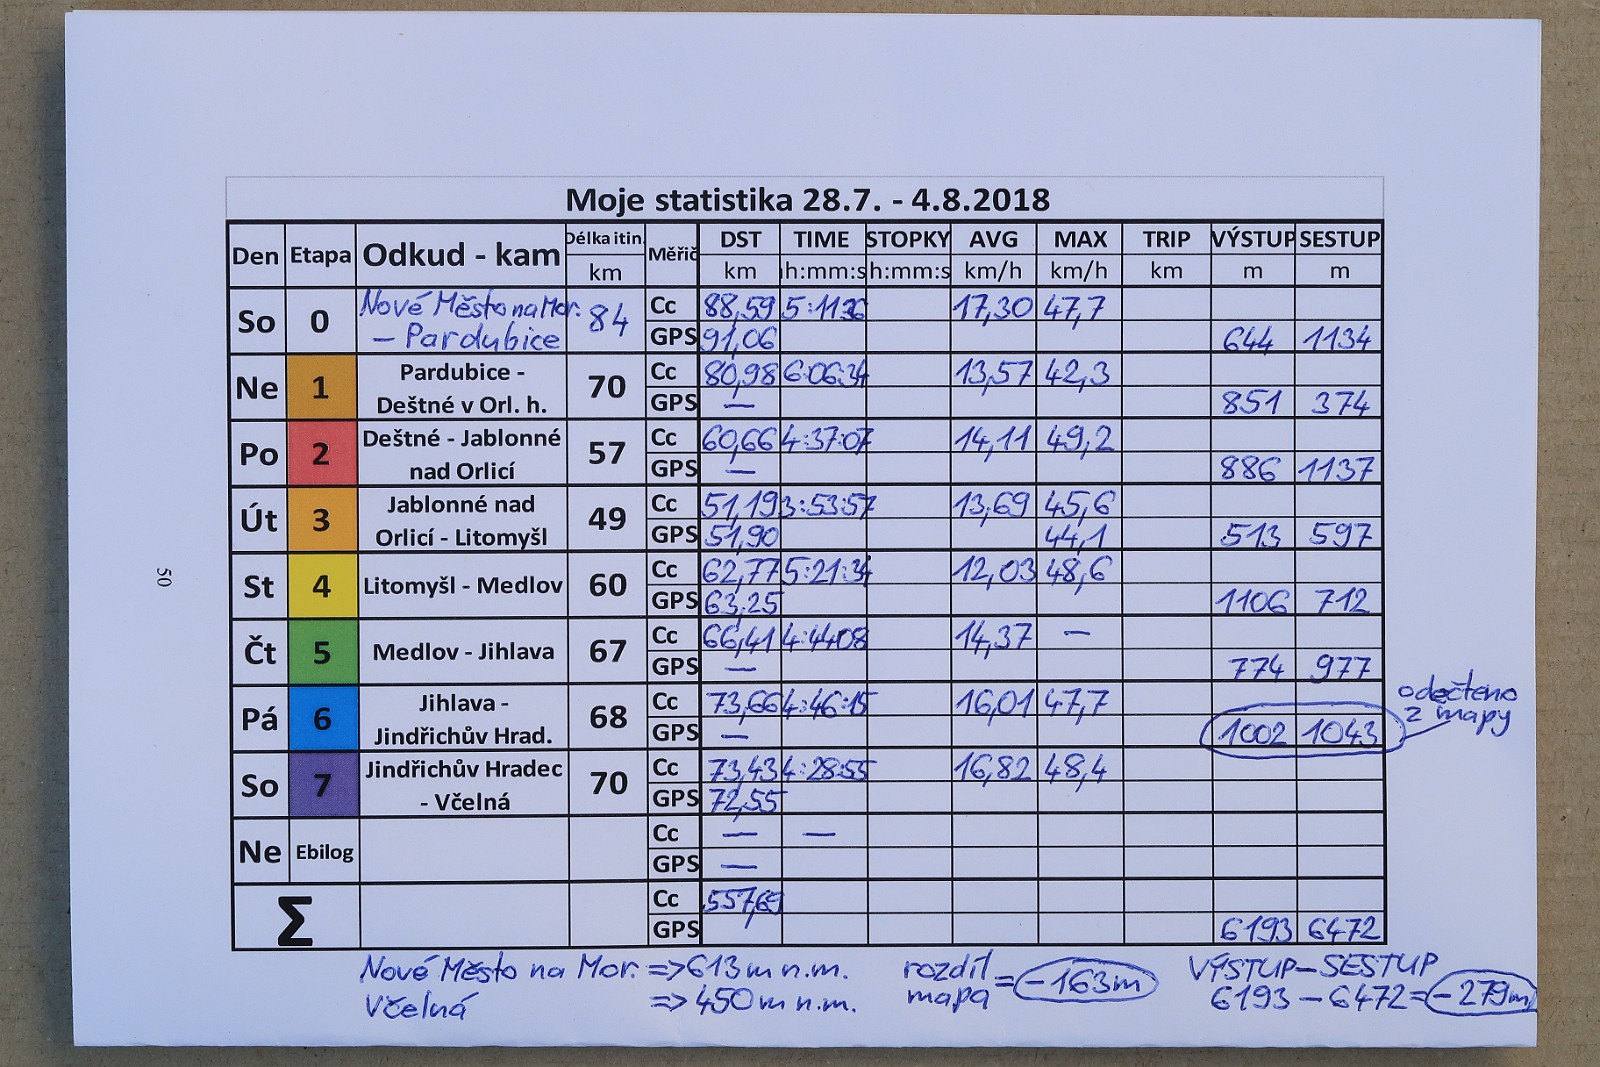 Moje statistika 28.7. - 4.8.2018
Den Etapa Odkud - kam Délka itin. Měřič DST TIME STOPKY AVG MAX TRIP VÝSTUP SESTUP
km km h:mm:s h:mm:s km/h km/h km m m
So 0 Nové Město na Mor. 84 Cc 88,59 17,30 47,7
– Pardubice GPS 91,06 644 1134
Ne 1 Pardubice - 70 Cc 80,98 6:06:34 13,57 42,3
Deštné v Orl. h. GPS — 851 374
Po 2 Deštné - Jablonné 57 Cc 60,66 4:37:07 14,11 49,2
nad Orlicí GPS — 886 1137
Út 3 Jablonné nad 49 Cc 51,19 3:53:57 13,69 45,6
Orlicí - Litomyšl GPS 51,90 44,1 513 597
St 4 Litomyšl - Medlov 60 Cc 62,77 5:21:34 12,03 48,6
GPS 63,25 1106 712
Čt 5 Medlov - Jihlava 67 Cc 66,41 4:44:08 14,37 —
GPS — 774 977
Pá 6 Jihlava - 68 Cc 73,66 4:46:15 16,01 47,7
Jindřichův Hrad. GPS — 1002 1043
odečteno
z mapy
So 7 Jindřichův Hradec 70 Cc 73,43 4:28:55 16,82 48,4
- Včelná GPS 72,55
Ne Ebilog Cc — —
GPS —
Σ Cc 557,69
GPS 6193 6472
Nové Město na Mor. => 613 m n.m. rozdíl mapa = -163m VÝSTUP–SESTUP
Včelná => 450 m n.m. 6193 – 6472 = -279m
50